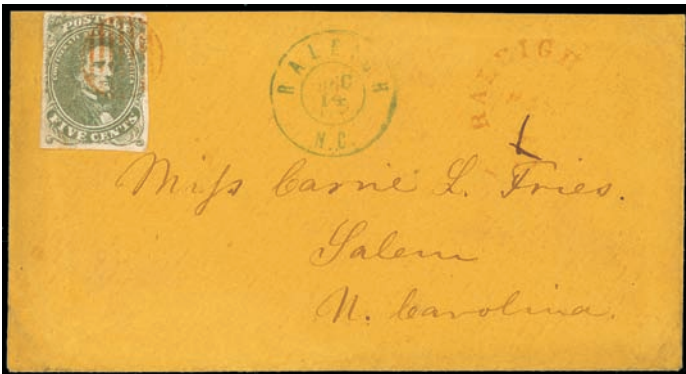 POSTAGE
FIVE CENTS
RALEIGH
DEC
14
N.C.
RALEIGH
Miss Carrie L. Fries.
Salem
N. Carolina.